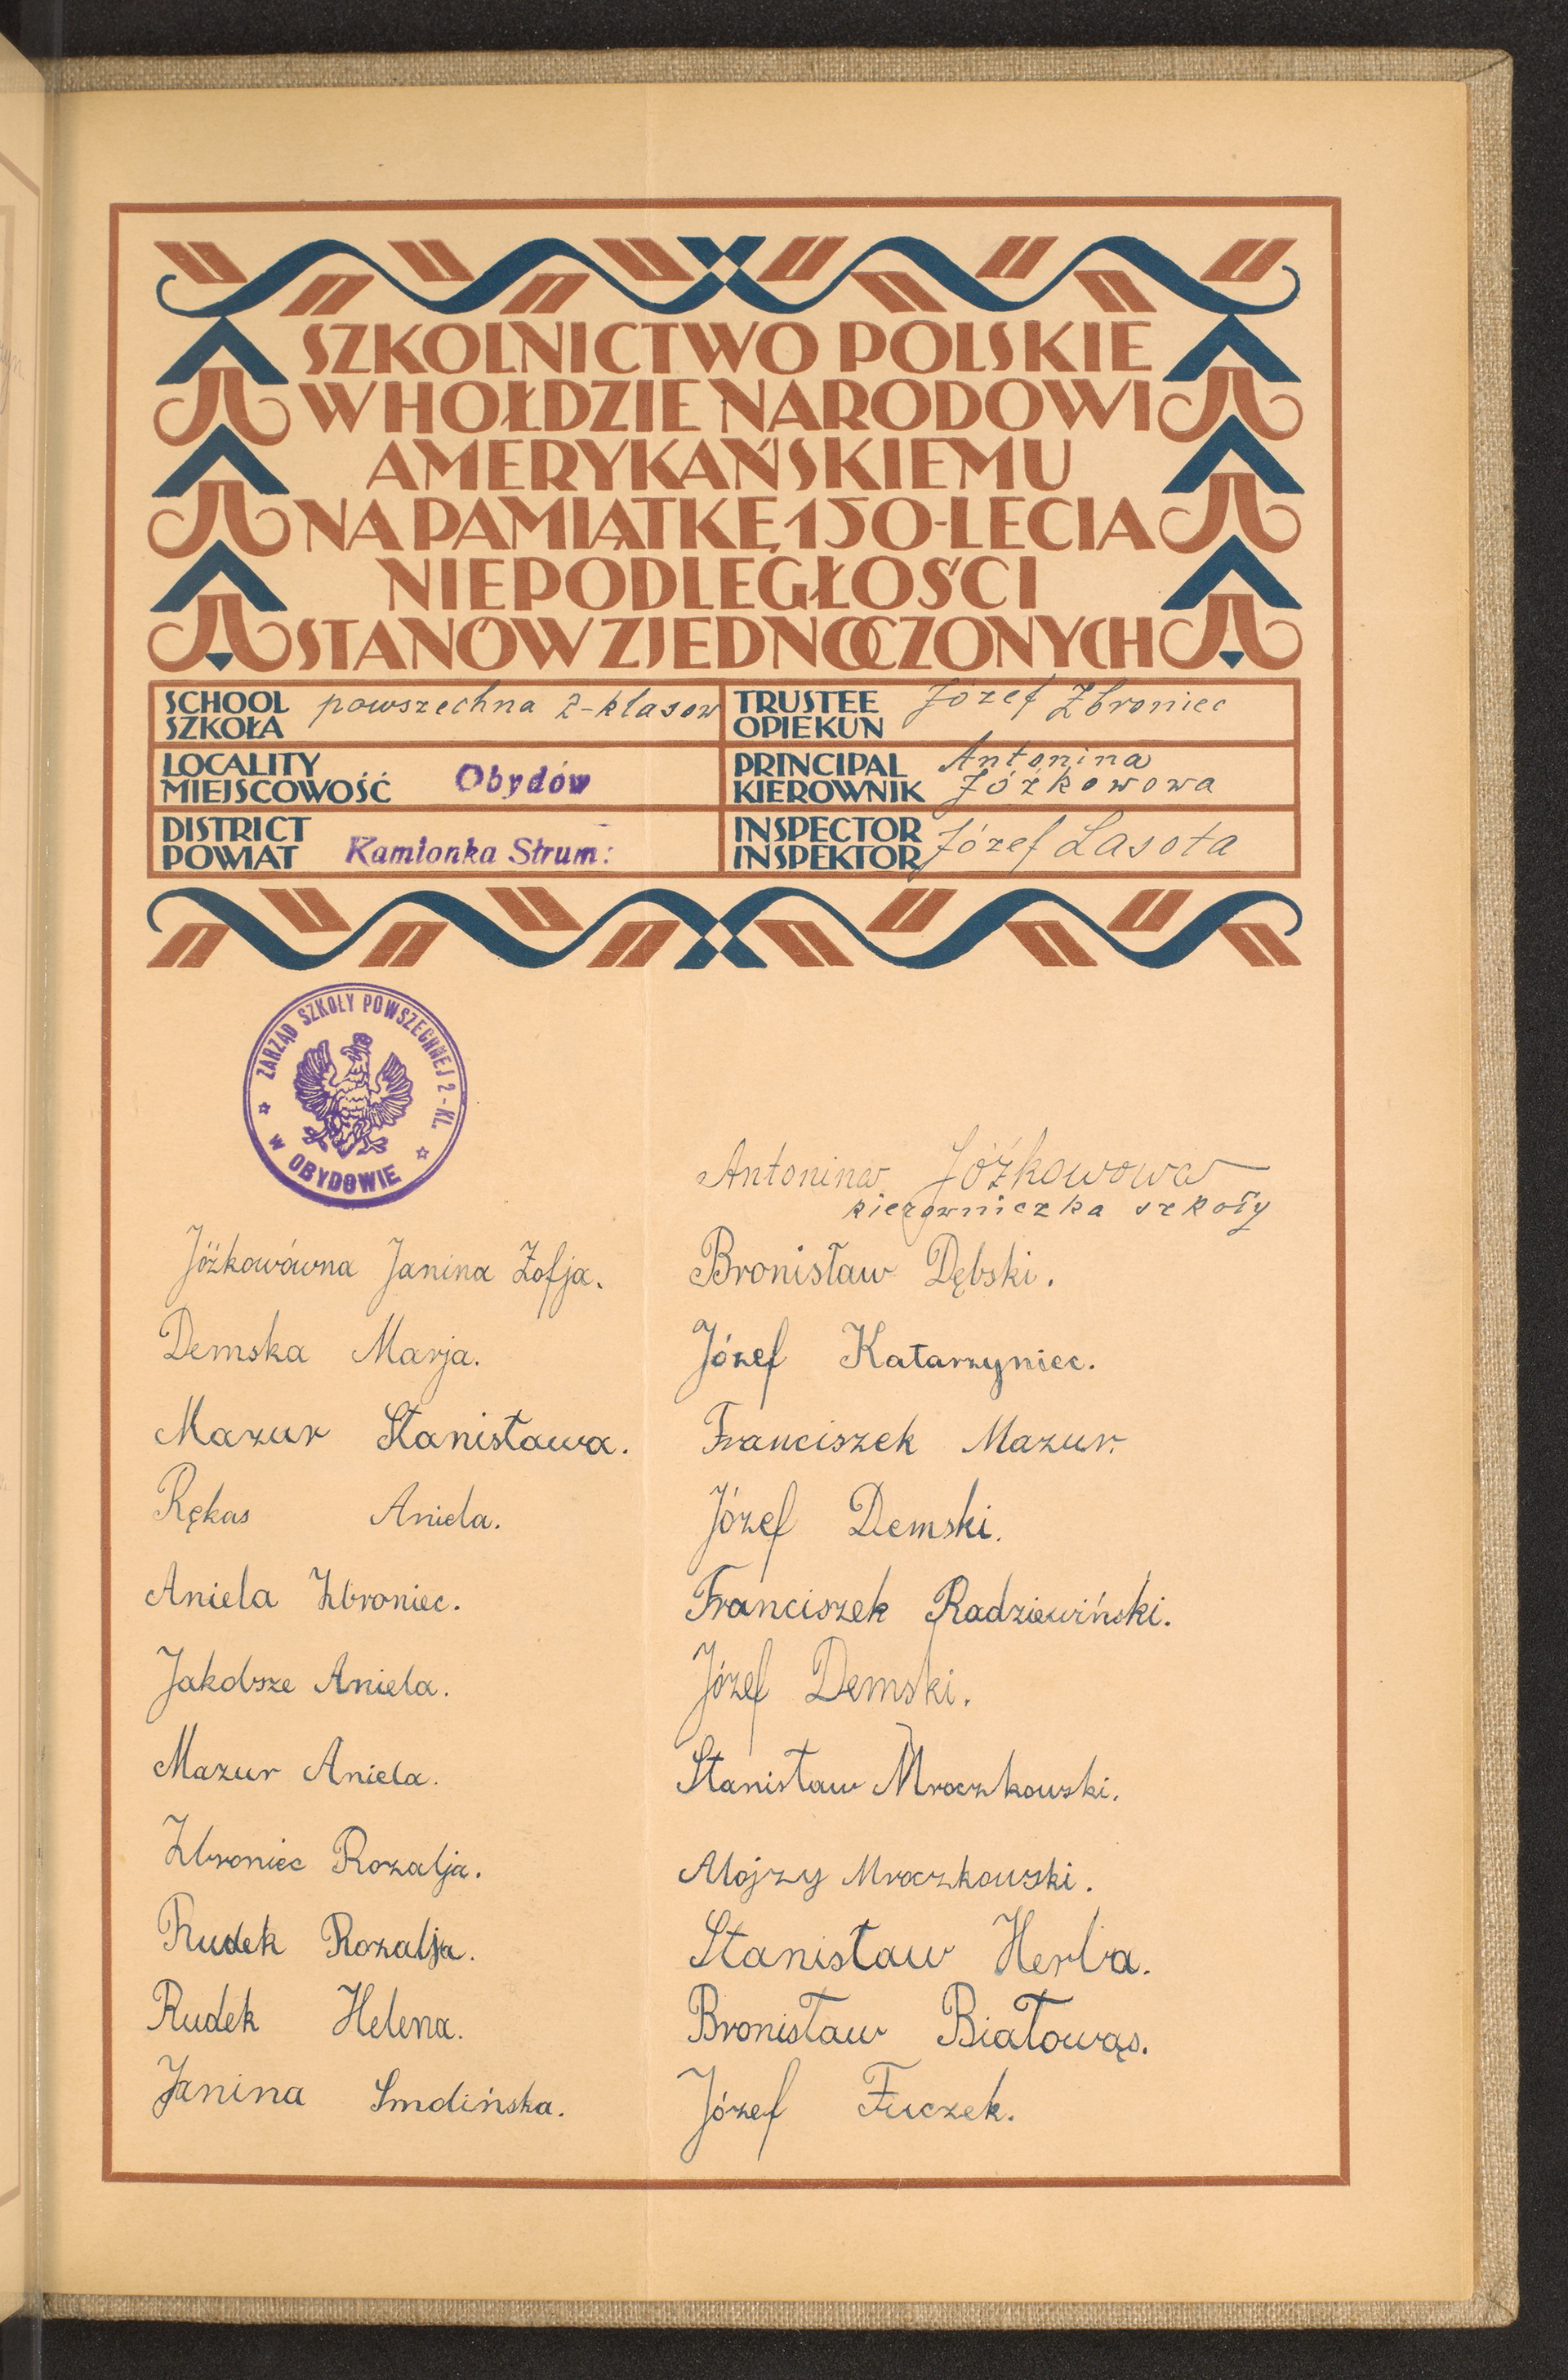 SZKOLNICTWO POLSKIE
W HOŁDZIE NARODOWI
AMERYKAŃSKIEMU
NA PAMIĄTKĘ 150-LECIA
NIEPODLEGŁOŚCI
STANÓW ZJEDNOCZONYCH
SCHOOL
SZKOŁA
powszechna 2-klasow
TRUSTEE
OPIEKUN
Józef Zbroniec
LOCALITY
MIEJSCOWOŚĆ
Obydów
PRINCIPAL
KIEROWNIK
Antonina
Jóźkowowa
DISTRICT
POWIAT
Kamionka Strum:
INSPECTOR
INSPEKTOR
Józef Lasota
ZARZĄD SZKOŁY POWSZECHNEJ 2-KL.
w OBYDOWIE
Antonina Jóźkowowa
kierowniczka szkoły
Jóźkowówna Janina Zofja.
Demska Marja.
Mazur Stanisława.
Rękas Aniela.
Aniela Zbroniec.
Jakobsze Aniela.
Mazur Aniela.
Zbroniec Rozalja.
Rudek Rozalja.
Rudek Helena.
Janina Smolińska.
Bronisław Dębski.
Józef Katarzyniec.
Franciszek Mazur.
Józef Demski.
Franciszek Radziewiński.
Józef Demski.
Stanisław Mroczkowski.
Alojzy Mroczkowski.
Stanisław Herba.
Bronisław Białowąs.
Józef Fuczek.